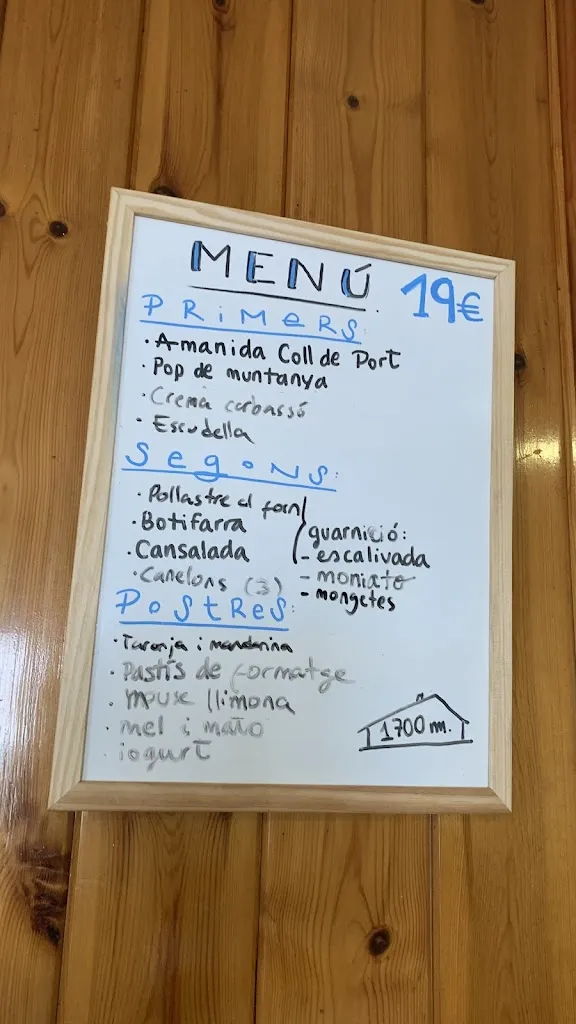 MENÚ 19€
PRIMERS
· Amanida Coll de Port
· Pop de muntanya
· Crema carbassó
· Escudella
Segons:
· Pollastre al forn
· Botifarra
· Cansalada
· Canelons (3)
guarnició:
- escalivada
- moniato
- mongetes
PoStReS:
· Taronja i mandarina
· Pastís de formatge
· mouse llimona
· mel i mató
· iogurt
1700 m.